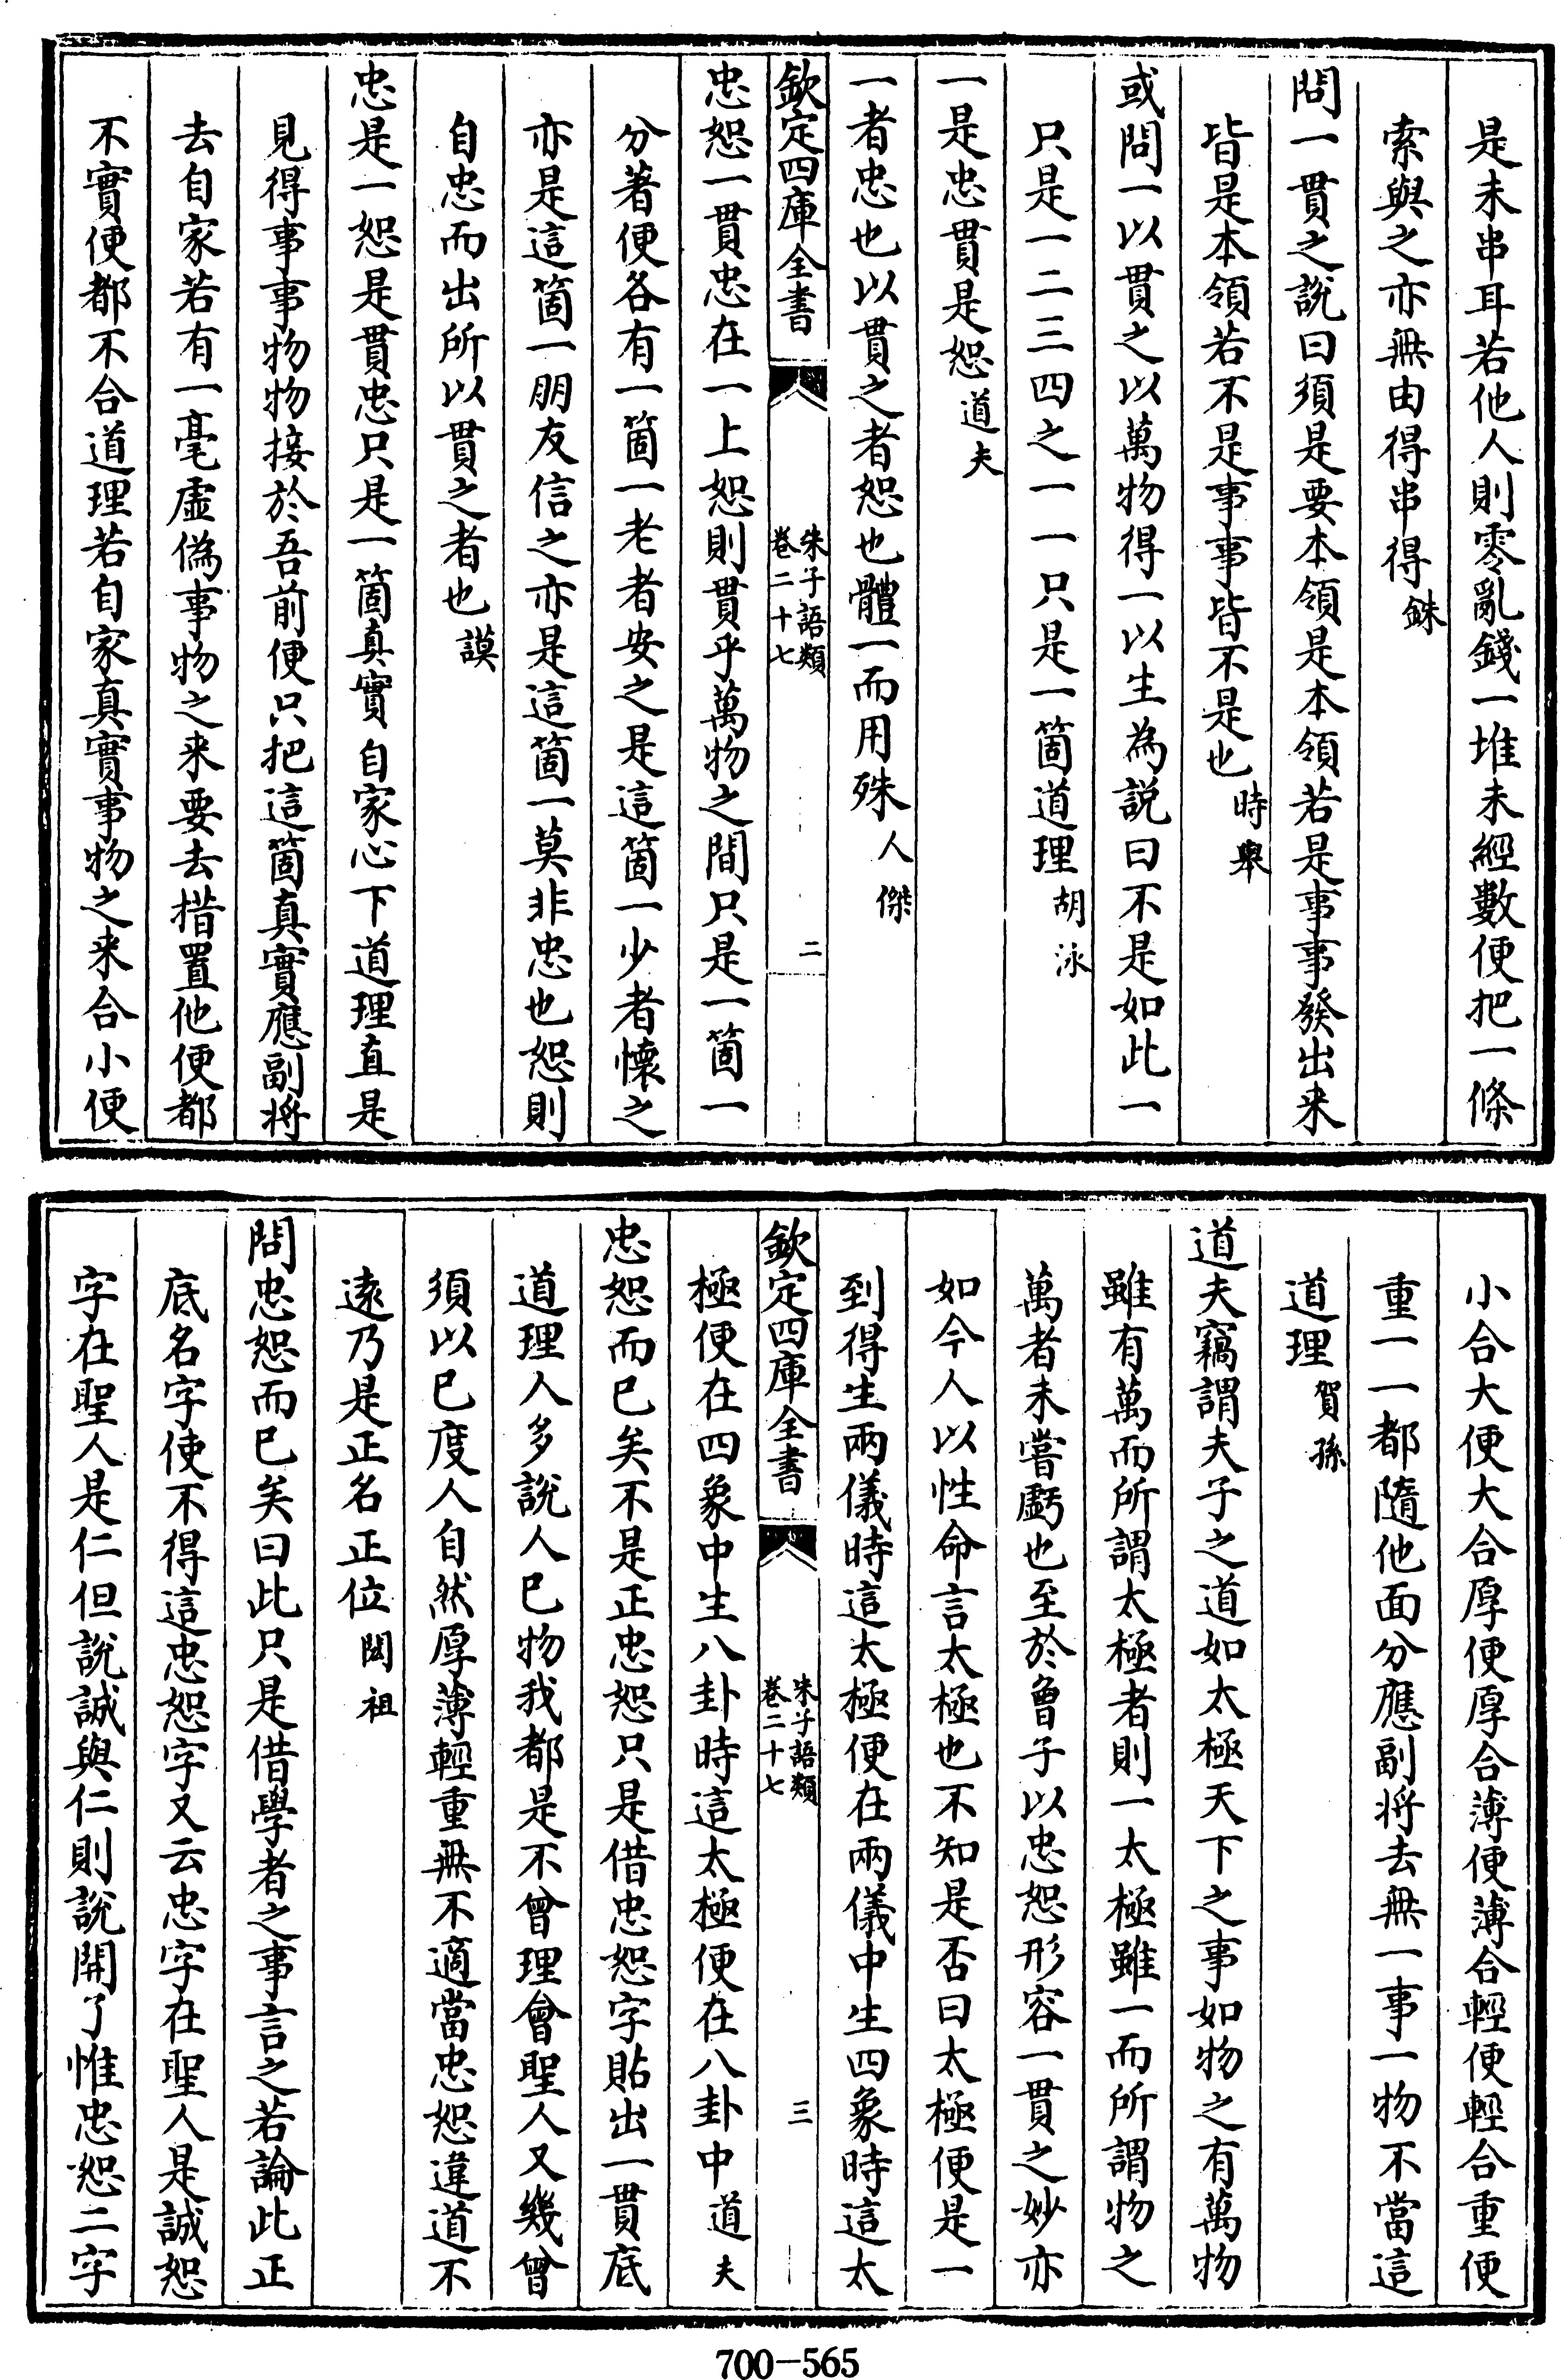 是未串耳若他人則零亂錢一堆未經數便把一條
索與之亦無由得串得銖
問一貫之説曰須是要本領是本領若是事事發出来
皆是本領若不是事事皆不是也時舉
或問一以貫之以萬物得一以生為説曰不是如此一
只是一二三四之一一只是一箇道理胡泳
一是忠貫是恕道夫
一者忠也以貫之者恕也體一而用殊人傑
欽定四庫全書
朱子語類
卷二十七
二
忠恕一貫忠在一上恕則貫乎萬物之間只是一箇一
分著便各有一箇一老者安之是這箇一少者懷之
亦是這箇一朋友信之亦是這箇一莫非忠也恕則
自忠而出所以貫之者也謨
忠是一恕是貫忠只是一箇真實自家心下道理直是
見得事事物物接於吾前便只把這箇真實應副將
去自家若有一毫虛偽事物之来要去措置他便都
不實便都不合道理若自家真實事物之来合小便
小合大便大合厚便厚合薄便薄合輕便輕合重便
重一一都隨他面分應副將去無一事一物不當這
道理賀孫
道夫竊謂夫子之道如太極天下之事如物之有萬物
雖有萬而所謂太極者則一太極雖一而所謂物之
萬者未嘗虧也至於曾子以忠恕形容一貫之妙亦
如今人以性命言太極也不知是否曰太極便是一
到得生兩儀時這太極便在兩儀中生四象時這太
欽定四庫全書
朱子語類
卷二十七
三
極便在四象中生八卦時這太極便在八卦中道夫
忠恕而已矣不是正忠恕只是借忠恕字貼出一貫底
道理人多說人已物我都是不曾理會聖人又幾曾
須以已度人自然厚薄輕重無不適當忠恕違道不
遠乃是正名正位閎祖
問忠恕而已矣曰此只是借學者之事言之若論此正
底名字使不得這忠恕字又云忠字在聖人是誠恕
字在聖人是仁但說誠與仁則說開了惟忠恕二字
700-565